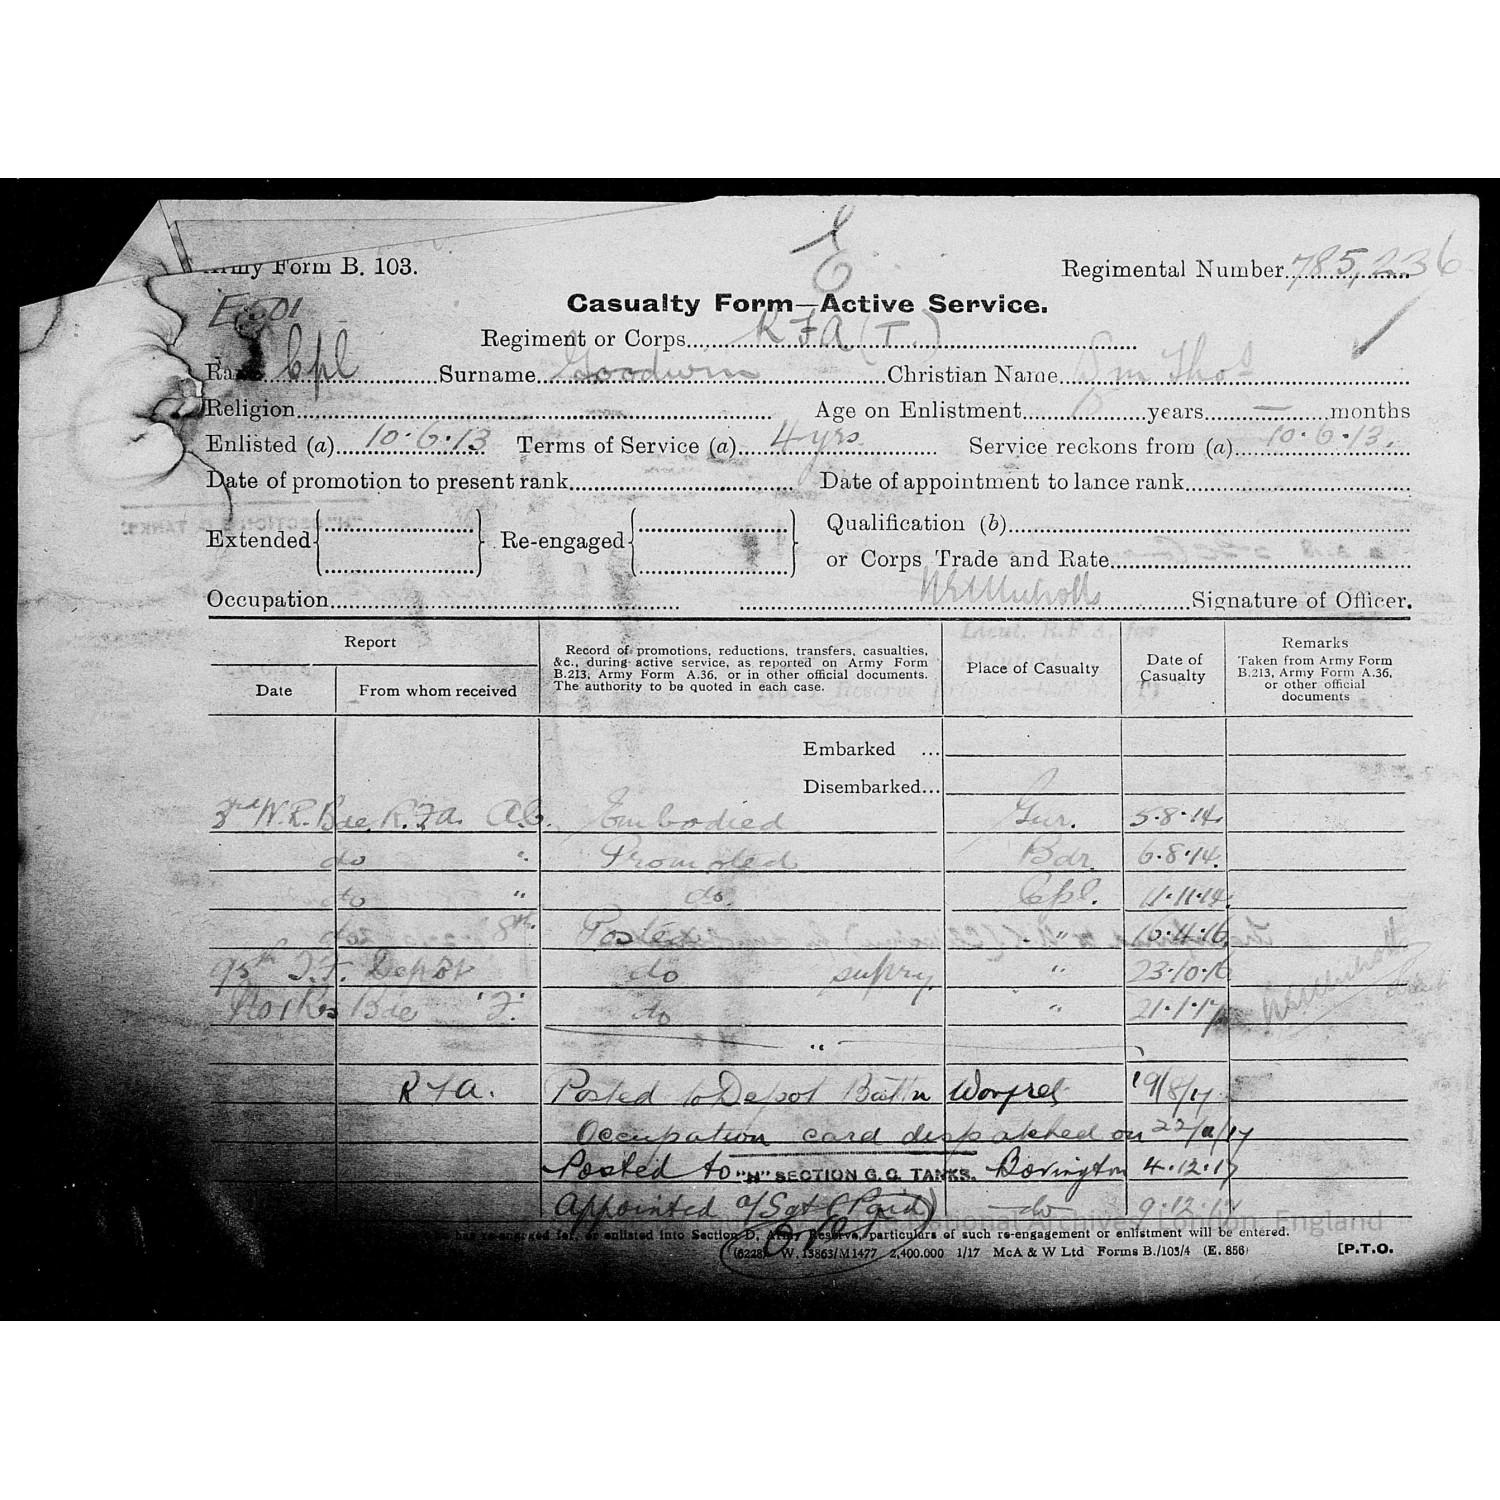 E
Army Form B. 103.
Regimental Number 785,236
E501
Casualty Form—Active Service.
Regiment or Corps R F A (T.)
Rank Cpl Surname Goodwin Christian Name Wm Thos
Religion Age on Enlistment years — months
Enlisted (a) 10.6.13 Terms of Service (a) 4 yrs Service reckons from (a) 10.6.13.
Date of promotion to present rank Date of appointment to lance rank
Extended Re-engaged Qualification (b)
or Corps Trade and Rate
Occupation Signature of Officer.
Report Record of promotions, reductions, transfers, casualties, &c., during active service, as reported on Army Form B.213, Army Form A.36, or in other official documents. The authority to be quoted in each case. Place of Casualty Date of Casualty Remarks Taken from Army Form B.213, Army Form A.36, or other official documents
Date From whom received
Embarked ...
Disembarked...
3rd N.R. Bde R.F.A. Embodied Gnr. 5.8.14.
do " Promoted Bdr 6.8.14.
do " do Cpl. 11.11.14.
do 8th. Posted " 10.4.16.
95th T.F. Depôt do supry. " 23.10.16
No 1 Res Bde 'F'. do " 21.1.17
"
R F A. Posted to Depot Batt'n Worgret 19/8/17
Occupation card despatched on 22/11/17
Posted to "H" SECTION G.C. TANKS. Bovington 4.12.17
Appointed a/Sgt (Paid) do 9.12.17
for, or enlisted into Section D, Army Reserve, particulars of such re-engagement or enlistment will be entered.
(6228) W. 13863/M1477 2,400.000 1/17 McA & W Ltd Forms B./103/4 (E. 856) [P.T.O.